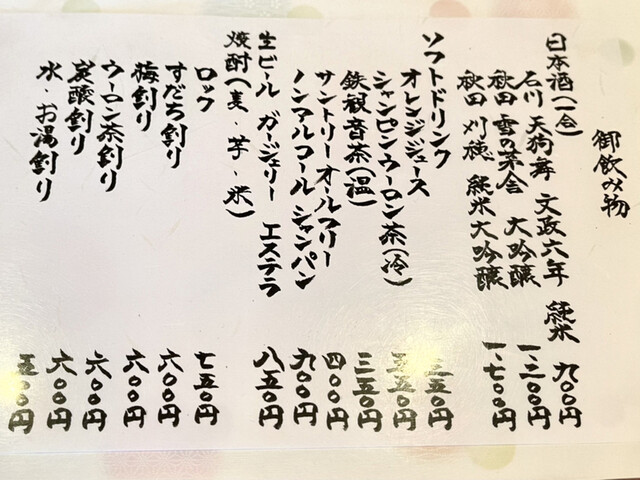 御飲み物
日本酒(一合)
石川 天狗舞 文政六年 純米 九〇〇円
秋田 雪の茅舎 大吟醸 一、三〇〇円
秋田 刈穂 純米大吟醸 一、七〇〇円
ソフトドリンク
オレンジジュース 三五〇円
シャンピンウーロン茶(冷)
鉄観音茶(温) 三五〇円
サントリーオールフリー 四〇〇円
ノンアルコールシャンパン 九〇〇円
生ビール ガージェリー エステラ 八五〇円
焼酎(麦・芋・米)
ロック 七五〇円
すだち割り 六〇〇円
梅割り 六〇〇円
ウーロン茶割り 六〇〇円
炭酸割り 六〇〇円
水・お湯割り 五〇〇円